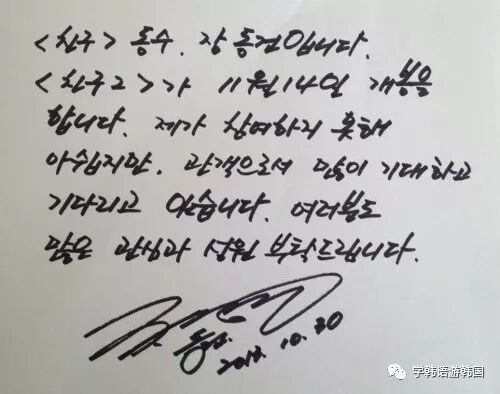 <친구> 동수. 장동건입니다.
<친구2>가 11월14일 개봉을
합니다. 제가 참여하지 못해
아쉽지만. 관객으로서 많이 기대하고
기다리고 있습니다. 여러분도
많은 관심과 성원 부탁드립니다.
동수.
2013. 10. 30
学韩语游韩国